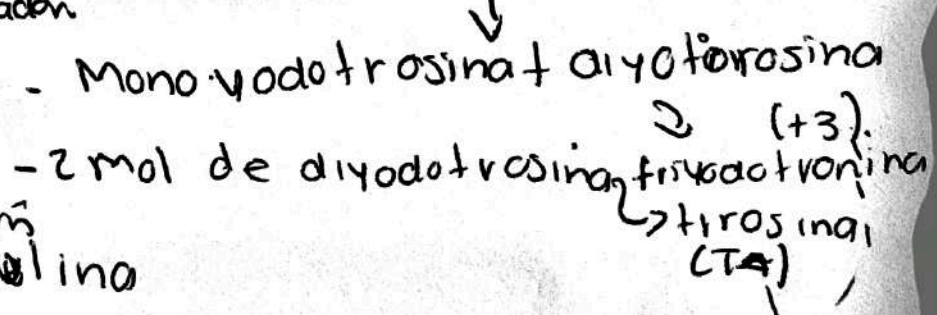 - Mono yodotrosina + diyotorosina
(+3).
- 2 mol de diyodotrosina triyodotronina
↳ tirosina
(T4)
lina